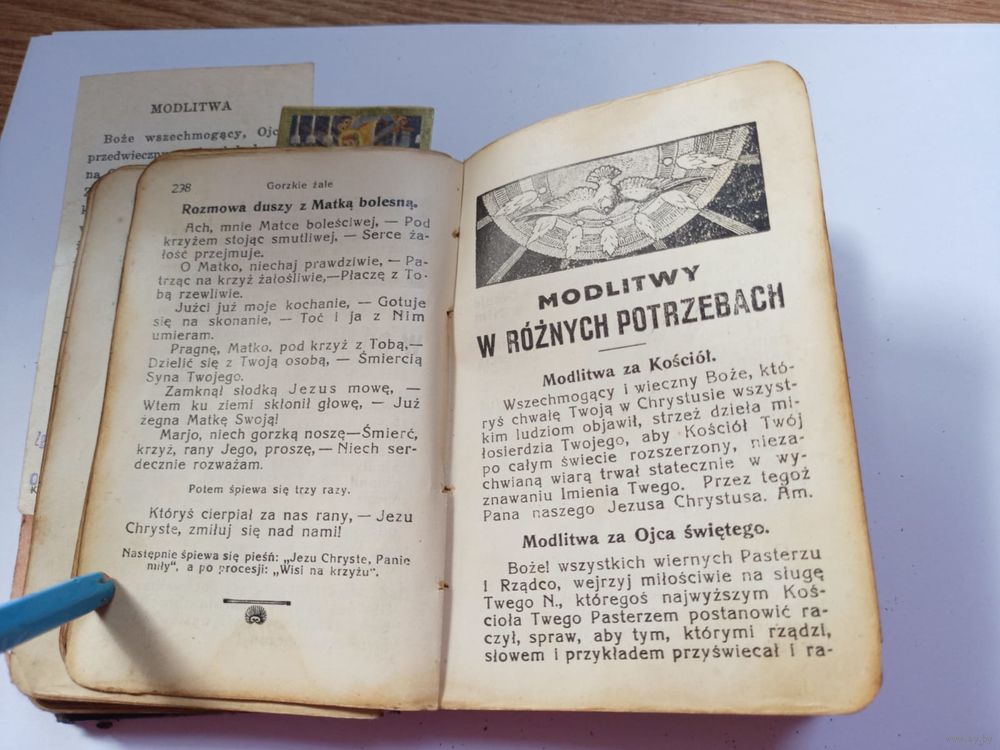 MODLITWA
Boże wszechmogący, Ojc
przedwieczn
na
238
Gorzkie żale
Rozmowa duszy z Matką bolesną.
Ach, mnie Matce boleściwej, — Pod
krzyżem stojąc smutliwej. — Serce ża-
łość przejmuje.
O Matko, niechaj prawdziwie, — Pa-
trząc na krzyż żałośliwie,—Płaczę z To-
bą rzewliwie.
Juźci już moje kochanie, — Gotuje
się na skonanie, — Toć i ja z Nim
umieram.
Pragnę, Matko. pod krzyż z Tobą,—
Dzielić się z Twoją osobą, — Śmiercią
Syna Twojego.
Zamknął słodką Jezus mowę, —
Wtem ku ziemi skłonił głowę, — Już
żegna Matkę Swoją!
Marjo, niech gorzką noszę—Śmierć,
krzyż, rany Jego, proszę, — Niech ser-
decznie rozważam.
Potem śpiewa się trzy razy.
Któryś cierpiał za nas rany, — Jezu
Chryste, zmiłuj się nad nami!
Następnie śpiewa się pieśń: „Jezu Chryste, Panie
miły“, a po procesji: „Wisi na krzyżu“.
MODLITWY
W RÓŻNYCH POTRZEBACH
Modlitwa za Kościół.
Wszechmogący i wieczny Boże, któ-
ryś chwałę Twoją w Chrystusie wszyst-
kim ludziom objawił, strzeż dzieła mi-
łosierdzia Twojego, aby Kościół Twój
po całym świecie rozszerzony, nieza-
chwianą wiarą trwał statecznie w wy-
znawaniu Imienia Twego. Przez tegoż
Pana naszego Jezusa Chrystusa. Am.
Modlitwa za Ojca świętego.
Boże! wszystkich wiernych Pasterzu
i Rządco, wejrzyj miłościwie na sługę
Twego N., któregoś najwyższym Koś-
cioła Twego Pasterzem postanowić ra-
czył, spraw, aby tym, którymi rządzi,
słowem i przykładem przyświecał i ra-